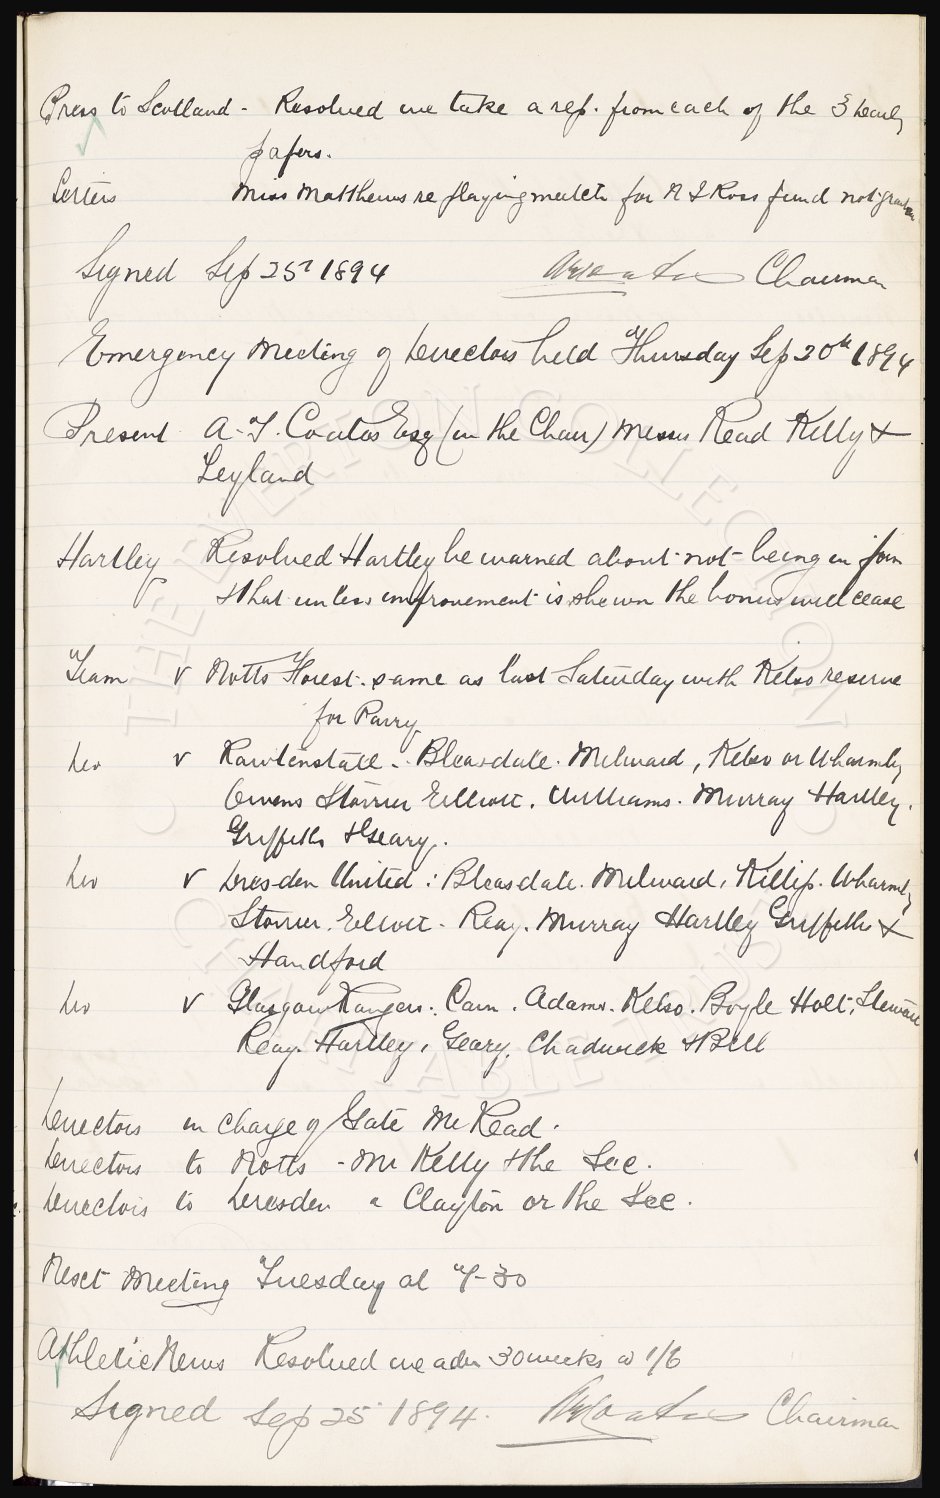 Press to Scotland - Resolved we take a rep. from each of the 3 Dearly
papers.
Letters Miss Matthews re playing match for N J Ross fund not granted
Signed Sep 25th 1894 Chairman
Emergency Meeting of Directors held Thursday Sep 20th 1894
Present A. T. Coates Esq (in the Chair) Messrs Read Kelly &
Leyland
Hartley Resolved Hartley be warned about not being in form
& that unless improvement is shown the bonus will cease
Team v Notts Forest. same as last Saturday with Kelso reserve
for Parry
Do v Rawtenstall - Bleasdale. Milward, Kelso or Wharmby
Owens Storrier Elliott. Williams. Murray Hartley.
Griffiths & Geary.
Do v Dresden United: Bleasdale. Milward, Killip. Wharmby
Storrier. Elliott - Reay. Murray Hartley Griffiths &
Handford
Do v Glasgow Rangers: Cain. Adams. Kelso. Boyle Holt, Stewart
Reay. Hartley, Geary, Chadwick & Bell
Directors in charge of Gate Mr Read.
Directors to Notts - Mr Kelly & the Sec.
Directors to Dresden " Clayton or the Sec.
Next Meeting Tuesday at 7-30
Athletic News Resolved we adv 30 weeks @ 1/6
Signed Sep 25 1894. Chairman
THE EVERTON COLLECTION
CHARITABLE TRUST